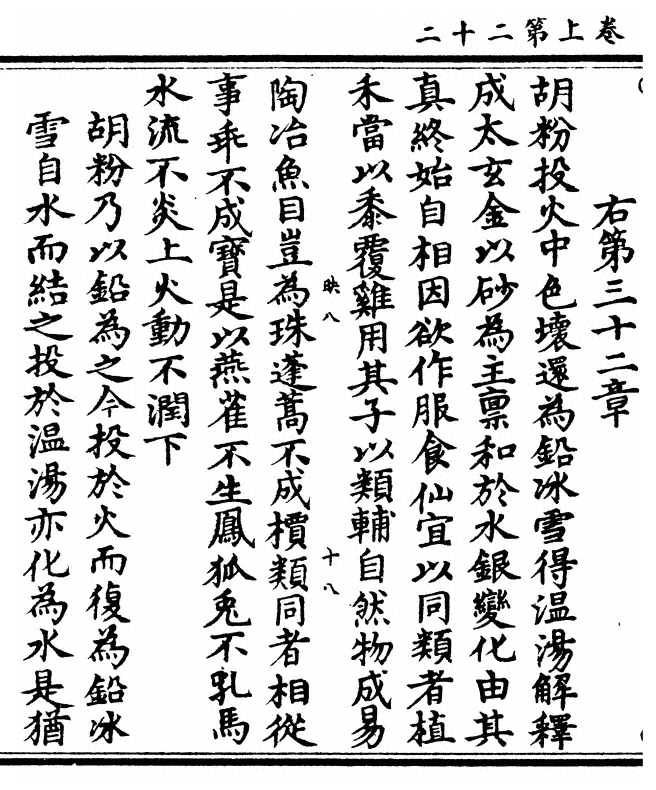 卷上第二十二
右第三十二章
胡粉投火中色壞還為鉛冰雪得温湯解釋
成太玄金以砂為主稟和於水銀變化由其
真終始自相因欲作服食仙宜以同類者植
禾當以黍覆雞用其子以類輔自然物成易
映八
十八
陶冶魚目豈為珠蓬蒿不成檟類同者相從
事乖不成寶是以燕雀不生鳳狐兔不乳馬
水流不炎上火動不潤下
胡粉乃以鉛為之今投於火而復為鉛冰
雪自水而結之投於温湯亦化為水是猶